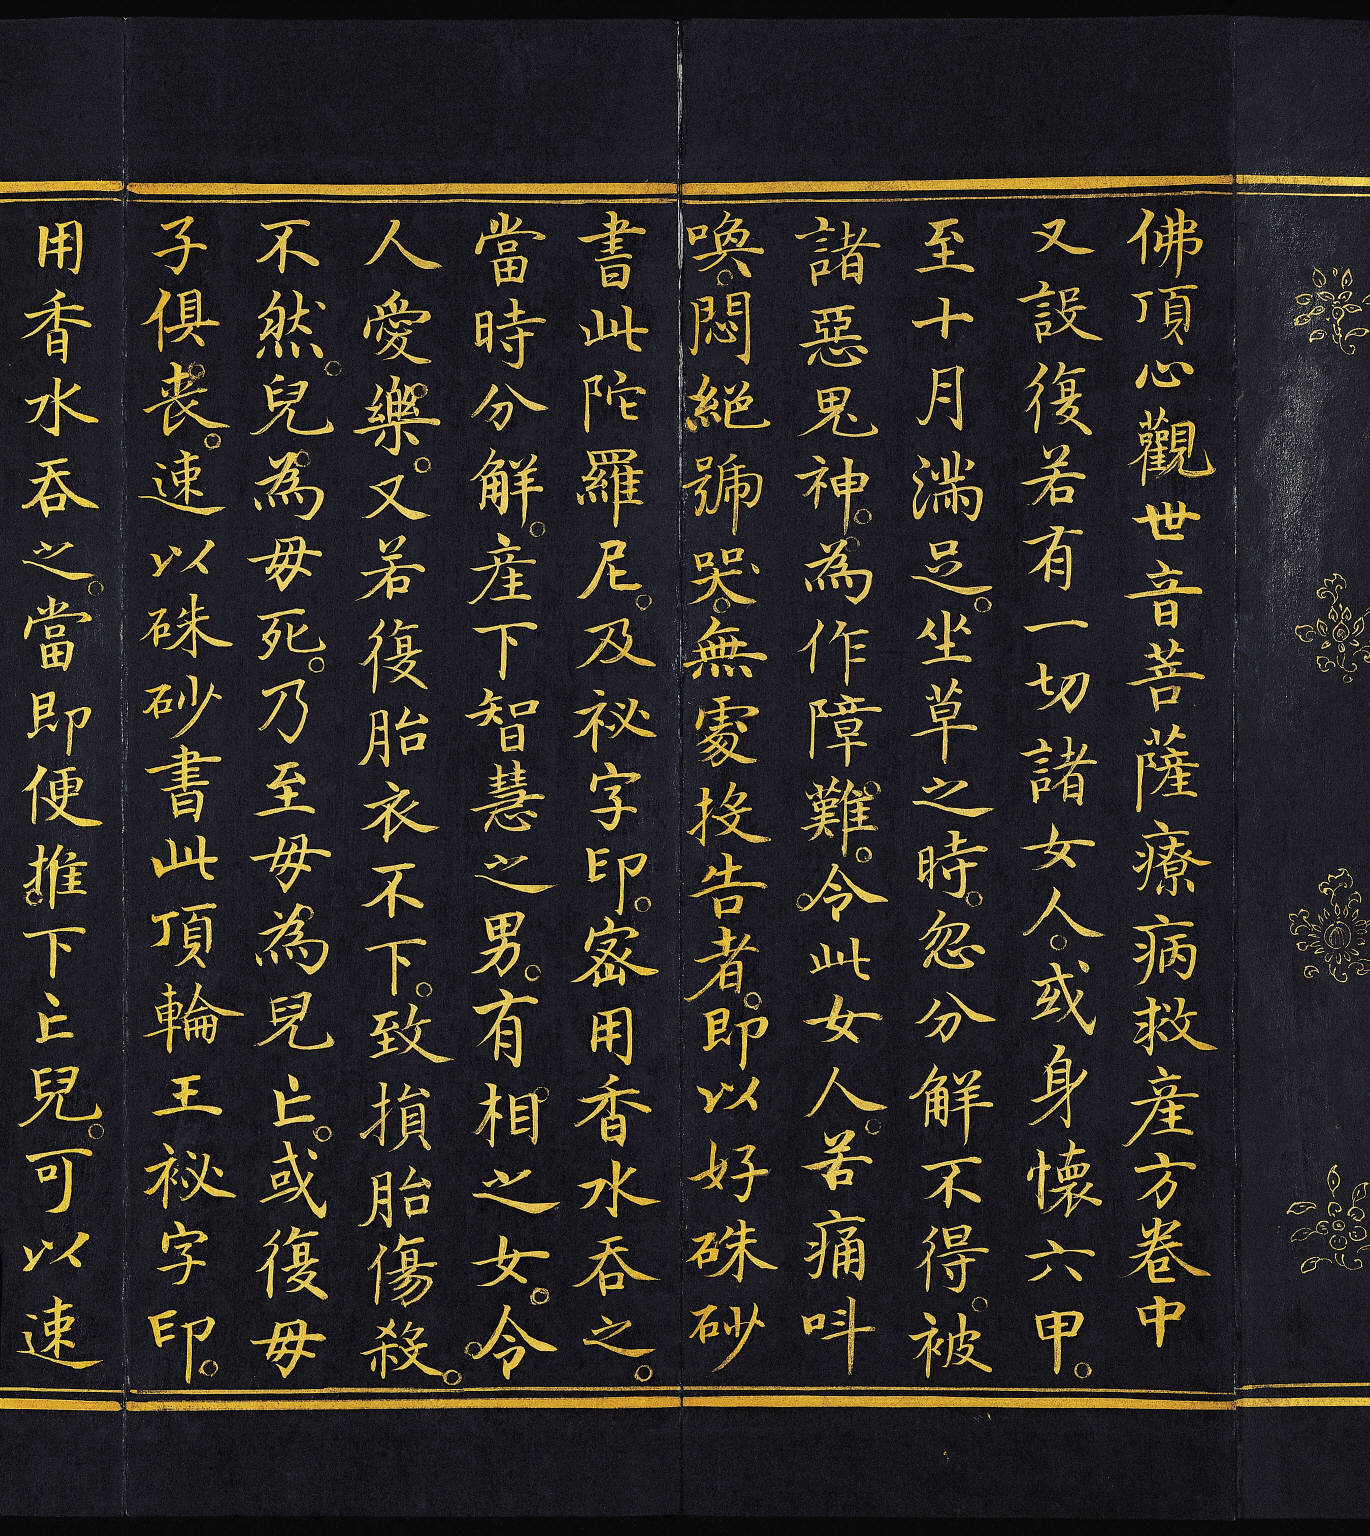 佛頂心觀世音菩薩療病救産方卷中
又設復若有一切諸女人或身懷六甲
至十月滿足坐草之時忽分解不得被
諸惡鬼神為作障難令此女人苦痛叫
喚悶絕號哭無處投告者即以好硃砂
書此陀羅尼及祕字印密用香水吞之
當時分解産下智慧之男有相之女令
人愛樂又若復胎衣不下致損胎傷殺
不然兒為母死乃至母為兒亡或復母
子俱喪速以硃砂書此頂輪王祕字印
用香水吞之當即便推下亡兒可以速